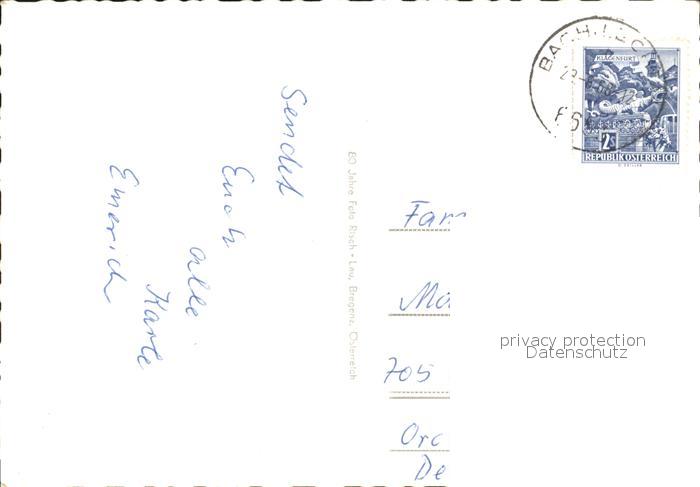 BACH, LECH
KLAGENFURT
2 S
REPUBLIK ÖSTERREICH
Sendet
Euch
alle
Karte
Emerich
80 Jahre Foto Risch-Lau, Bregenz, Österreich
Fam
705
privacy protection
Datenschutz